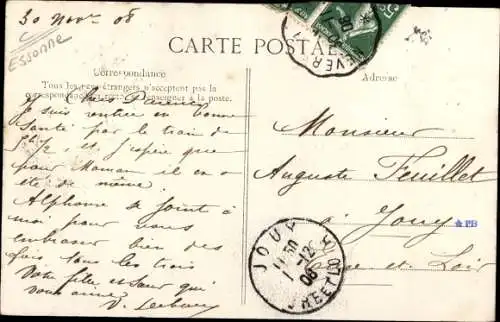 30 Nov. 08
Essonne
CARTE POSTALE
Correspondance
Tous les pays étrangers n'acceptent pas la
correspondance se renseigner à la poste.
Chers Parents
Je suis rentrée en bonne
Santé par le train de
et j'espère que
pour Maman il en a
été de même.
Alphonse se joint à
moi pour vous
embrasser bien des
fois tous les trois
Votre fille et sœur qui
vous aime
Adresse
Monsieur
Auguste Feuillet
à Jouy
Eure et Loir
JOUY
1-12
08
EURE ET LOIR
PB